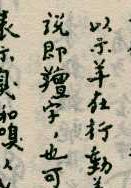 以示羊在行動
说即羶字，也可
表示和嗅